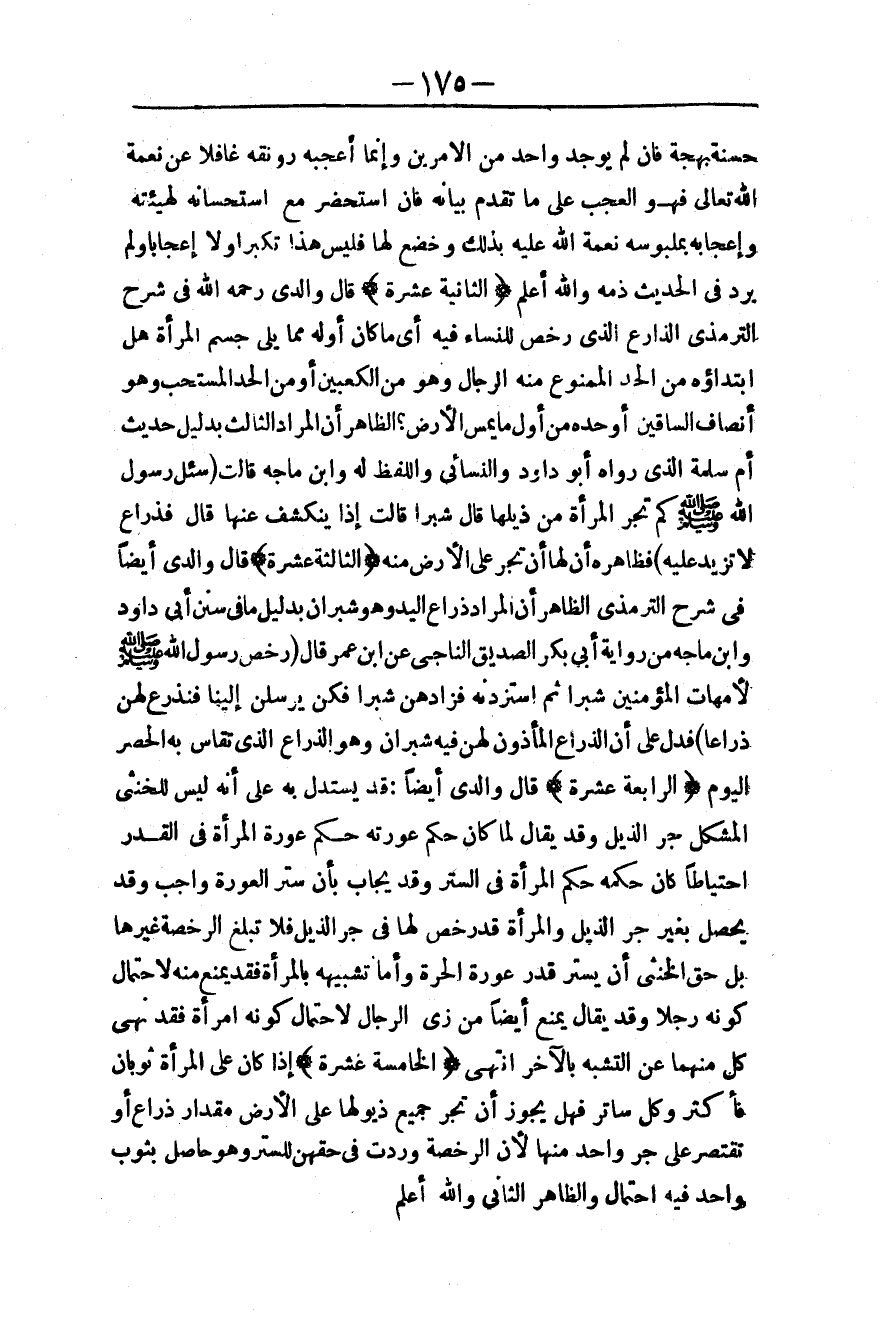 — ١٧٥ —
حسنة بهجة فان لم يوجد واحد من الامرين وإنما أعجبه رونقه غافلا عن نعمة
الله تعالى فهو العجب على ما تقدم بيانه فان استحضر مع استحسانه لهيئته
وإعجابه بملبوسه نعمة الله عليه بذلك وخضع لها فليس هذا تكبرا ولا إعجابا ولم
يرد فى الحديث ذمه والله أعلم ﴿ الثانية عشرة ﴾ قال والدى رحمه الله فى شرح
الترمذى الذارع الذى رخص للنساء فيه أى ما كان أوله مما يلى جسم المرأة هل
ابتداؤه من الحد الممنوع منه الرجال وهو من الكعبين أو من الحد المستحب وهو
أنصاف الساقين أو حده من أول ما يمس الأرض؟ الظاهر أن المراد الثالث بدليل حديث
أم سلمة الذى رواه أبو داود والنسائي واللفظ له وابن ماجه قالت (سئل رسول
الله ﷺ كم تجر المرأة من ذيلها قال شبرا قالت إذا ينكشف عنها قال فذراع
لا تزيد عليه) فظاهره أن لها أن تجر على الأرض منه ﴿ الثالثة عشرة ﴾ قال والدى أيضاً
فى شرح الترمذى الظاهر أن المراد ذراع اليد وهو شبران بدليل ما فى سنن أبي داود
وابن ماجه من رواية أبي بكر الصديق الناجى عن ابن عمر قال (رخص رسول الله ﷺ
لأمهات المؤمنين شبرا ثم استزدنه فزادهن شبرا فكن يرسلن إلينا فنذرع لهن
ذراعا) فدل على أن الذراع المأذون لهن فيه شبران وهو الذراع الذى تقاس به الحصر
اليوم ﴿ الرابعة عشرة ﴾ قال والدى أيضاً : قد يستدل به على أنه ليس للخنثى
المشكل جر الذيل وقد يقال لما كان حكم عورته حكم عورة المرأة فى القدر
احتياطاً كان حكمه حكم المرأة فى الستر وقد يجاب بأن ستر العورة واجب وقد
يحصل بغير جر الذيل والمرأة قد رخص لها فى جر الذيل فلا تبلغ الرخصة غيرها
بل حق الخنثى أن يستر قدر عورة الحرة وأما تشبيهه بالمرأة فقد يمنع منه لاحتمال
كونه رجلا وقد يقال يمنع أيضاً من زى الرجال لاحتمال كونه امرأة فقد نهى
كل منهما عن التشبه بالآخر انتهى ﴿ الخامسة عشرة ﴾ إذا كان على المرأة ثوبان
فأكثر وكل ساتر فهل يجوز أن تجر جميع ذيولها على الأرض مقدار ذراع أو
تقتصر على جر واحد منها لأن الرخصة وردت فى حقهن للستر وهو حاصل بثوب
واحد فيه احتمال والظاهر الثانى والله أعلم